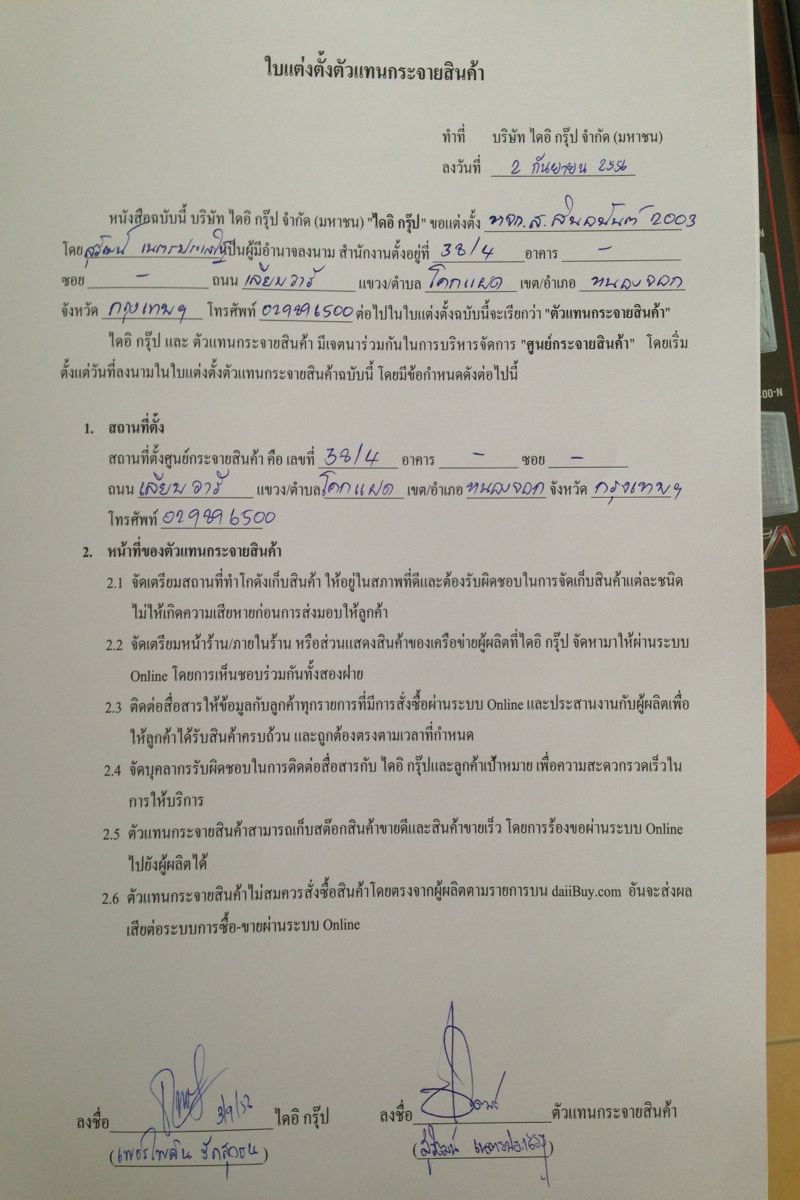 ใบแต่งตั้งตัวแทนกระจายสินค้า
ทำที่ บริษัท ไดอิ กรุ๊ป จำกัด (มหาชน)
ลงวันที่ 2 กันยายน 2556
หนังสือฉบับนี้ บริษัท ไดอิ กรุ๊ป จำกัด (มหาชน) "ไดอิ กรุ๊ป" ขอแต่งตั้ง หจก.ส. 2003
โดย สุวัฒน์ เป็นผู้มีอำนาจลงนาม สำนักงานตั้งอยู่ที่ 38/4 อาคาร –
ซอย – ถนน เลียบวารี แขวง/ตำบล โคกแฝด เขต/อำเภอ หนองจอก
จังหวัด กรุงเทพฯ โทรศัพท์ 029896500 ต่อไปในใบแต่งตั้งฉบับนี้จะเรียกว่า "ตัวแทนกระจายสินค้า"
ไดอิ กรุ๊ป และ ตัวแทนกระจายสินค้า มีเจตนาร่วมกันในการบริหารจัดการ "ศูนย์กระจายสินค้า" โดยเริ่ม
ตั้งแต่วันที่ลงนามในใบแต่งตั้งตัวแทนกระจายสินค้าฉบับนี้ โดยมีข้อกำหนดดังต่อไปนี้
1. สถานที่ตั้ง
สถานที่ตั้งศูนย์กระจายสินค้า คือ เลขที่ 38/4 อาคาร – ซอย –
ถนน เลียบวารี แขวง/ตำบล โคกแฝด เขต/อำเภอ หนองจอก จังหวัด กรุงเทพฯ
โทรศัพท์ 029896500
2. หน้าที่ของตัวแทนกระจายสินค้า
2.1 จัดเตรียมสถานที่ทำโกดังเก็บสินค้า ให้อยู่ในสภาพที่ดีและต้องรับผิดชอบในการจัดเก็บสินค้าแต่ละชนิด
ไม่ให้เกิดความเสียหายก่อนการส่งมอบให้ลูกค้า
2.2 จัดเตรียมหน้าร้าน/ภายในร้าน หรือส่วนแสดงสินค้าของเครือข่ายผู้ผลิตที่ไดอิ กรุ๊ป จัดหามาให้ผ่านระบบ
Online โดยการเห็นชอบร่วมกันทั้งสองฝ่าย
2.3 ติดต่อสื่อสารให้ข้อมูลกับลูกค้าทุกรายการที่มีการสั่งซื้อผ่านระบบ Online และประสานงานกับผู้ผลิตเพื่อ
ให้ลูกค้าได้รับสินค้าครบถ้วน และถูกต้องตรงตามเวลาที่กำหนด
2.4 จัดบุคลากรรับผิดชอบในการติดต่อสื่อสารกับ ไดอิ กรุ๊ปและลูกค้าเป้าหมาย เพื่อความสะดวกรวดเร็วใน
การให้บริการ
2.5 ตัวแทนกระจายสินค้าสามารถเก็บสต๊อกสินค้าขายดีและสินค้าขายเร็ว โดยการร้องขอผ่านระบบ Online
ไปยังผู้ผลิตได้
2.6 ตัวแทนกระจายสินค้าไม่สมควรสั่งซื้อสินค้าโดยตรงจากผู้ผลิตตามรายการบน daiiBuy.com อันจะส่งผล
เสียต่อระบบการซื้อ-ขายผ่านระบบ Online
ลงชื่อ ไดอิ กรุ๊ป ลงชื่อ ตัวแทนกระจายสินค้า
(เพชรไพลิน รักสุธน) (สุวัฒน์ )